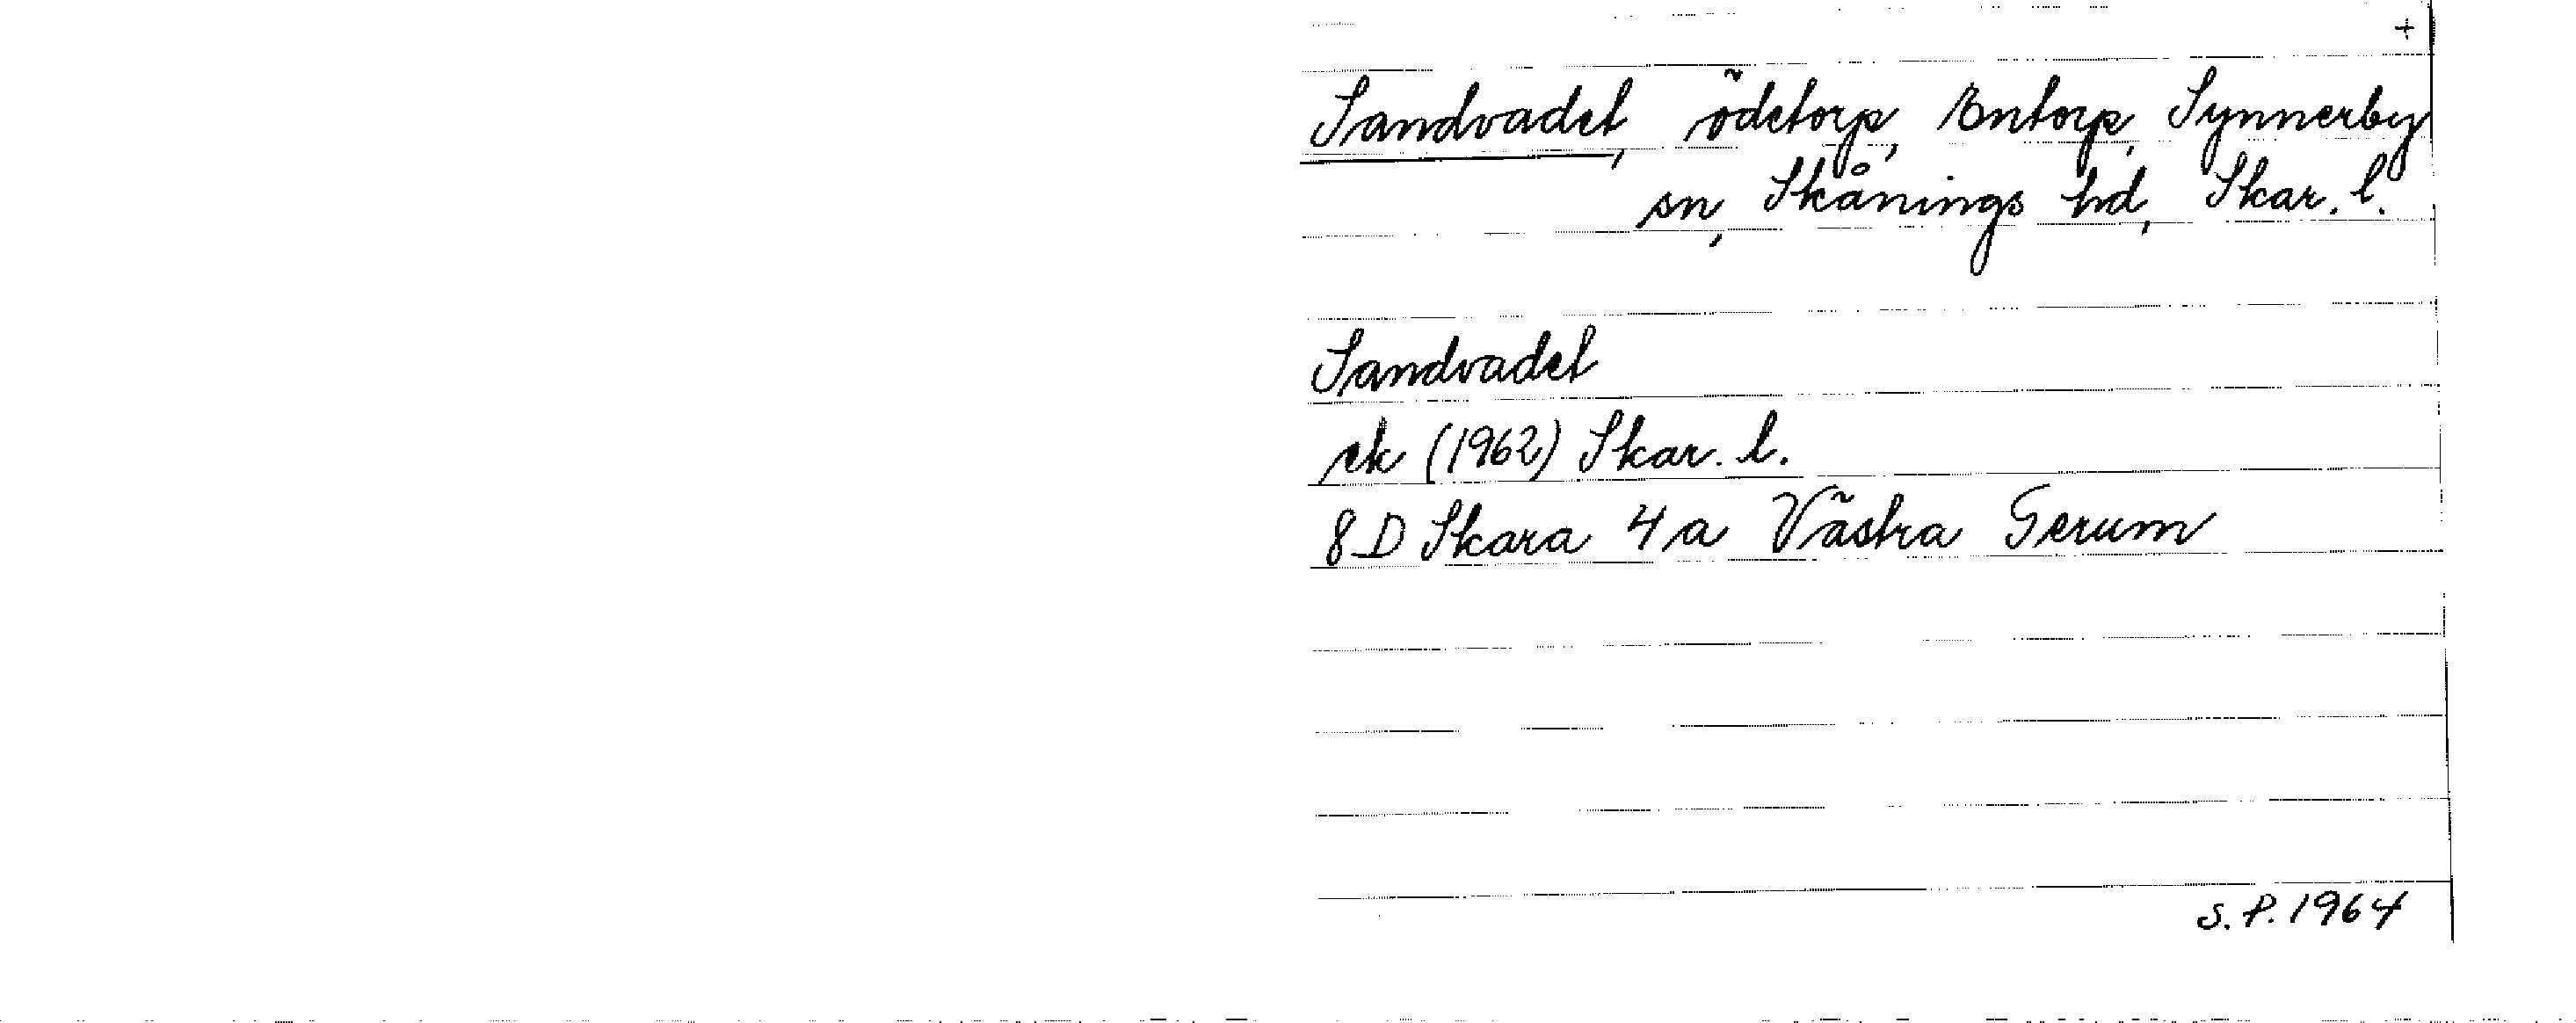 +
Sandvadet, ödetorp, Entorp, Synnerby
sn, Skånings hd, Skar. l.
Sandvadet
ek (1962) Skar. l.
8D Skara 4a Västra Gerum
S.P. 1964